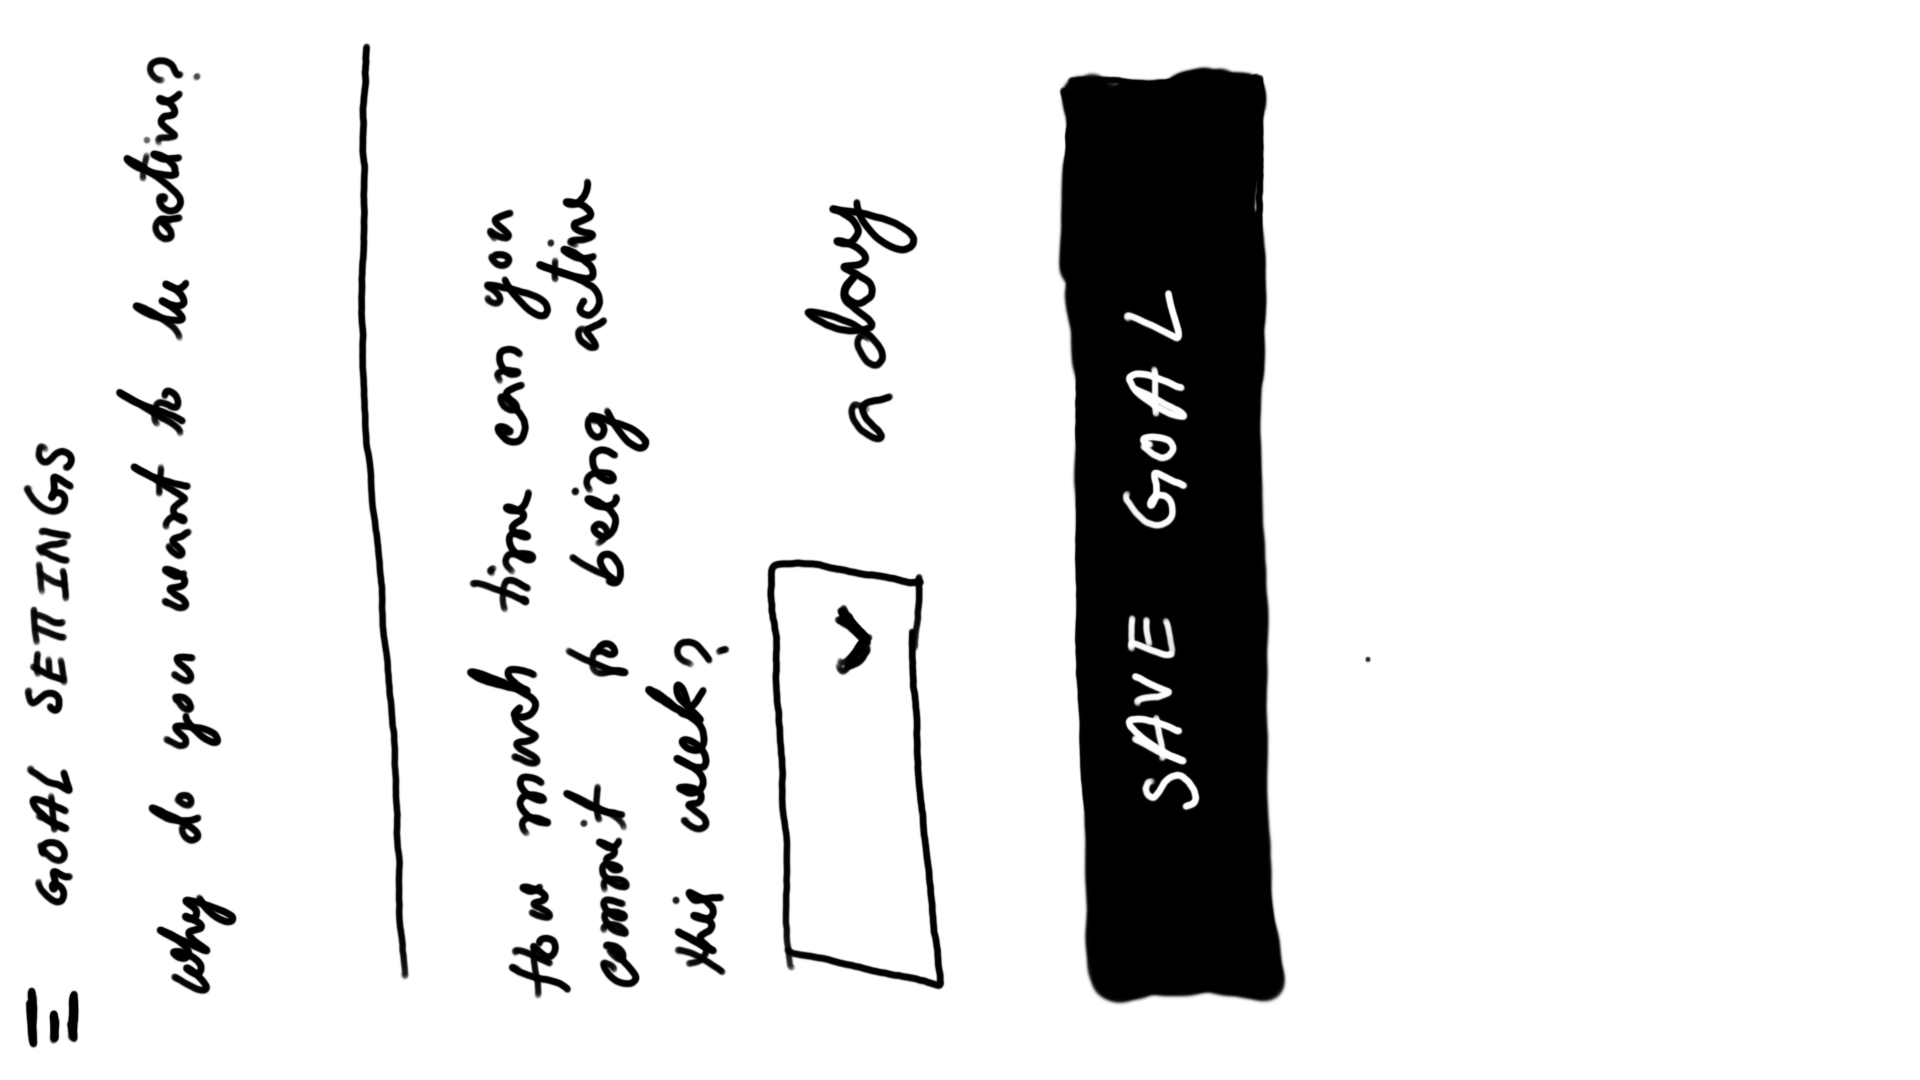 GOAL SETTINGS
Why do you want to be active?
How much time can you
commit to being active
this week?
a day
SAVE GOAL